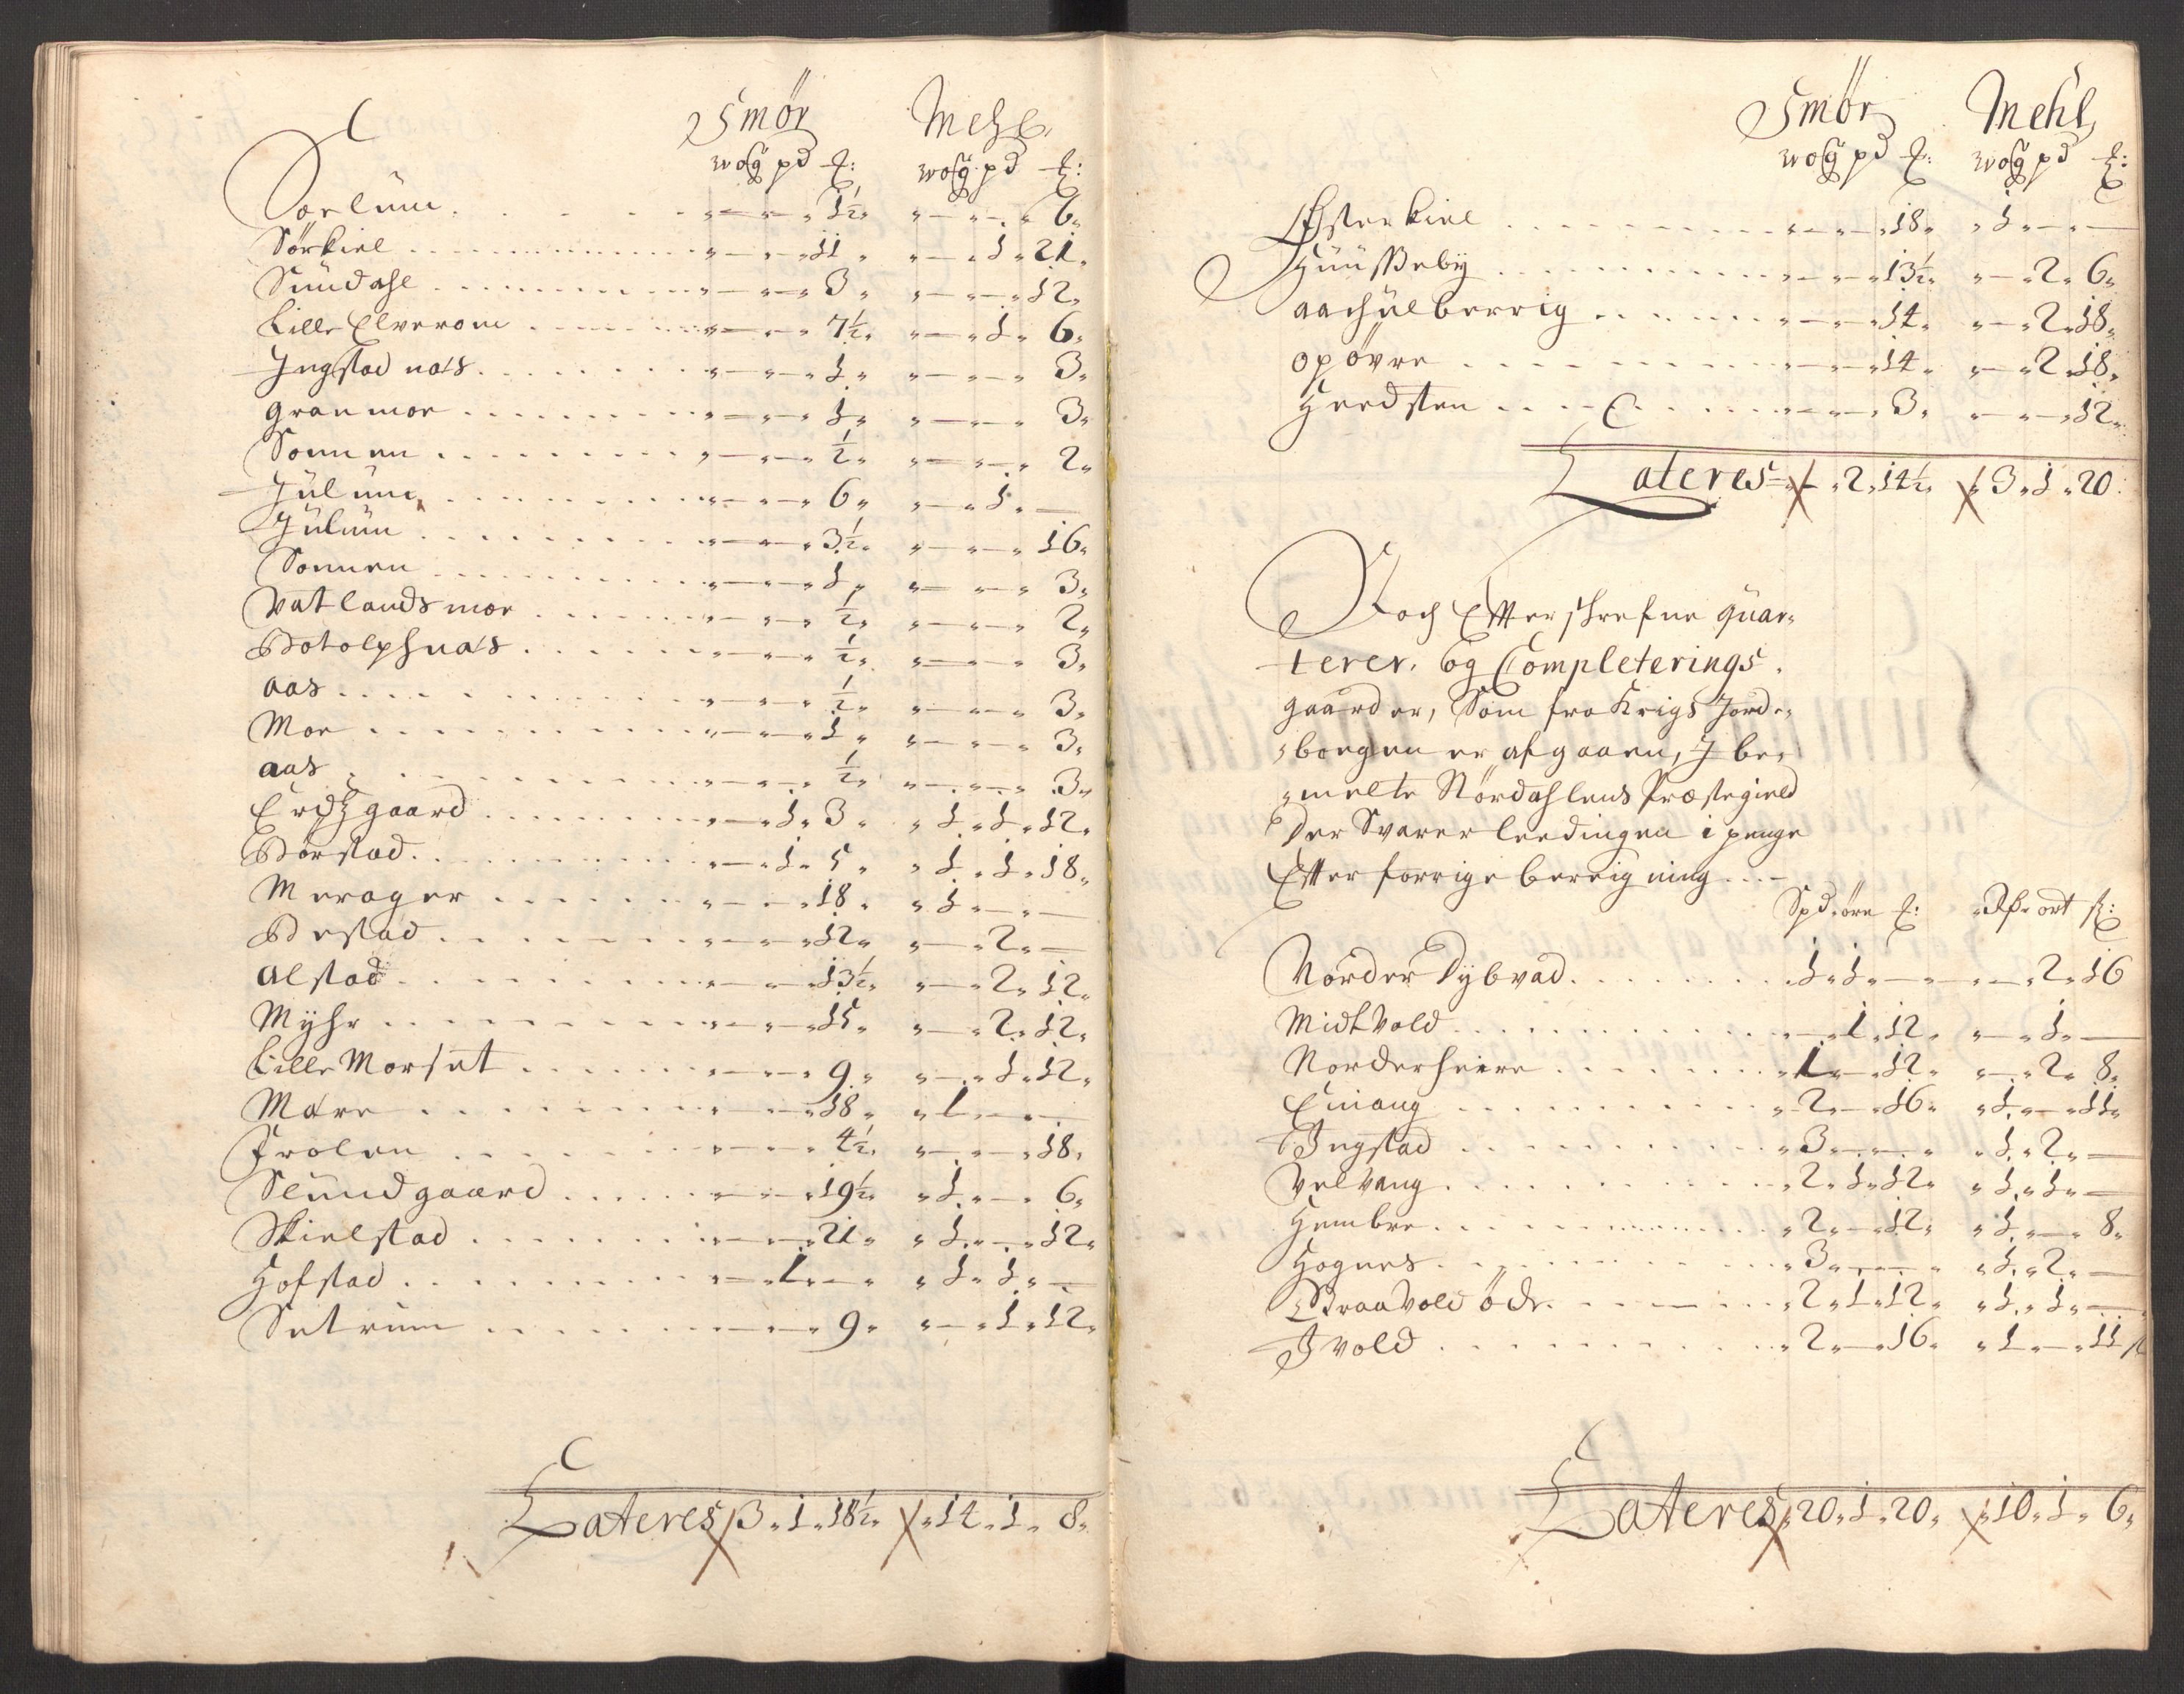 Smör Mehl
wog pd ℔: wog pd ℔:
Sorlium . . . „ — „ — „ 1½ „ „ — „ — „ 6 „
Sörkiel . . . „ — „ — „ 11 „ „ — „ 1 „ 21 „
Sundahl . . . „ — „ — „ 3 „ „ — „ — „ 12 „
Lille Elverom . . . „ — „ — „ 7½ „ „ — „ 1 „ 6 „
Ingstad nas . . . „ — „ — „ 1 „ „ — „ — „ 3 „
Granmor . . . „ — „ — „ 1 „ „ — „ — „ 3 „
Sonnen . . . „ — „ — „ ½ „ „ — „ — „ 2 „
Julum . . . „ — „ — „ 6 „ „ — „ 1 „ —
Julum . . . „ — „ — „ 3½ „ „ — „ — „ 16 „
Sonnen . . . „ — „ — „ 1 „ „ — „ — „ 3 „
Vatlandsmor . . . „ — „ — „ ½ „ „ — „ — „ 2 „
Botolphnas . . . „ — „ — „ ½ „ „ — „ — „ 3 „
aas . . . „ — „ — „ ½ „ „ — „ — „ 3 „
Mor . . . „ — „ — „ 1 „ „ — „ — „ 3 „
aas . . . „ — „ — „ ½ „ „ — „ — „ 3 „
gaard . . . „ — „ 1 „ 3 „ „ 1 „ 1 „ 12 „
Borstad . . . „ — „ 1 „ 5 „ „ 1 „ 1 „ 18 „
Merager . . . „ — „ — „ 18 „ „ 1 „ — „ —
Bestad . . . „ — „ — „ 12 „ „ — „ 2 „ —
alstad . . . „ — „ — „ 13½ „ „ — „ 2 „ 12 „
Myhr . . . „ — „ — „ 15 „ „ — „ 2 „ 12 „
Lille Morset . . . „ — „ — „ 9 „ „ — „ 1 „ 12 „
Mære . . . „ — „ — „ 18 „ „ 1 „ — „ —
Frolen . . . „ — „ — „ 4½ „ „ — „ — „ 18 „
Slundgaard . . . „ — „ — „ 19½ „ „ 1 „ — „ 6 „
Skielstad . . . „ — „ — „ 21 „ „ 1 „ — „ 12 „
Hofstad . . . „ — „ 1 „ — „ „ 1 „ 1 „ —
Setrum . . . „ — „ — „ 9 „ „ — „ 1 „ 12 „
Lateres 3 „ 1 „ 18½ „ „ 14 „ 1 „ 8 „
Smör Mehl
wog pd ℔: wog pd ℔:
Østerkiel . . . „ — „ — „ 18 „ „ 1 „ — „ —
Huusseby . . . „ — „ — „ 13½ „ „ — „ 2 „ 6 „
. . . „ — „ — „ 14 „ „ — „ 2 „ 18 „
opövre . . . „ — „ — „ 14 „ „ — „ 2 „ 18 „
Heedsten . . . „ — „ — „ 3 „ „ — „ — „ 12 „
Lateres — „ 2 „ 14½ „ „ 3 „ 1 „ 20
Noch Efterskrefne quar„
terer, og Completerings
gaarder, Som fra Krigs Jorde„
„bogen er afgaaen, J be„
„melte Størdahlens Præstegield
der Svarer leedingen i penge
Efter forrige berrigning . . . —
Spd. öre ℔: Rdr ort s:
Nørder Dybvad . . . „ 1 „ 1 „ — „ „ — „ 2 „ 16
Midtvold . . . „ — „ 1 „ 12 „ „ — „ 1 „ —
Norderheire . . . „ 1 „ — „ 12 „ „ — „ 2 „ 8 „
Einang . . . „ 2 „ — „ 16 „ „ 1 „ — „ 11 „
Ingstad . . . „ 3 „ — „ — „ „ 1 „ 2 „ —
Velvang . . . „ 2 „ 1 „ 12 „ „ 1 „ 1 „ —
Hembre . . . „ 2 „ — „ 12 „ „ 1 „ — „ 8 „
Hognes . . . „ 3 „ — „ — „ „ 1 „ 2 „ —
Braavold öde . . . „ 2 „ 1 „ 12 „ „ 1 „ 1 „ —
Jvold . . . „ 2 „ — „ 16 „ „ 1 „ — „ 11
Lateres „ 20 „ 1 „ 20 „ „ 10 „ 1 „ 6 „